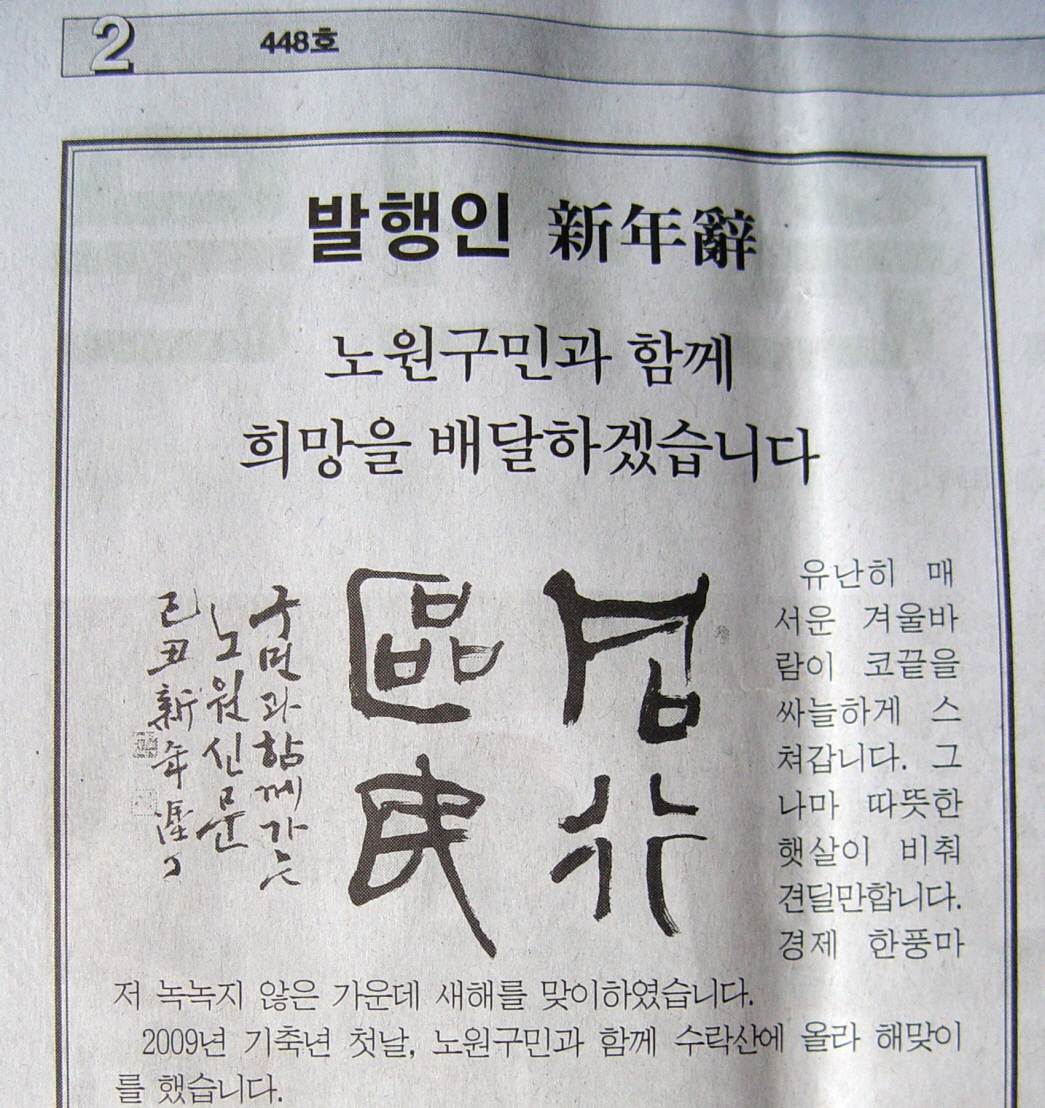 2
448호
발행인 新年辭
노원구민과 함께
희망을 배달하겠습니다
同行
區民
구민과 함께 가는
노원신문
己丑新年
유난히 매
서운 겨울바
람이 코끝을
싸늘하게 스
쳐갑니다. 그
나마 따뜻한
햇살이 비춰
견딜만합니다.
경제 한풍마
저 녹녹지 않은 가운데 새해를 맞이하였습니다.
2009년 기축년 첫날, 노원구민과 함께 수락산에 올라 해맞이
를 했습니다.